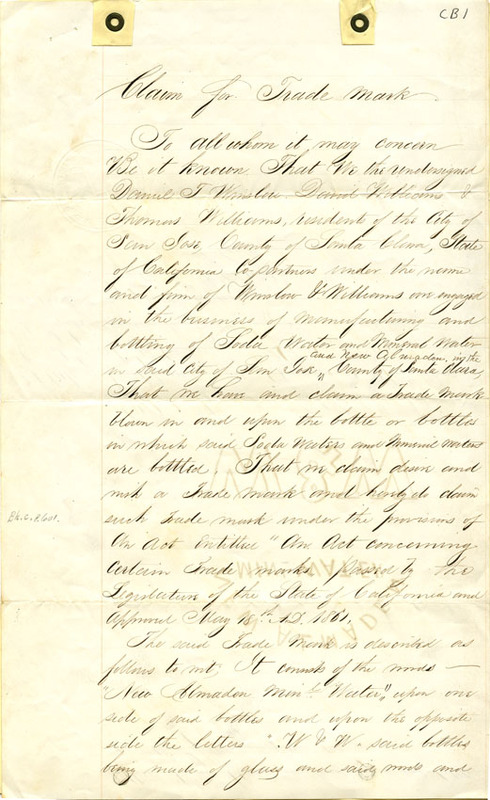 CB1
Claim for Trade Mark.
To all whom it may concern
Be it known That We the undersigned
Daniel T. Winslow, David Williams &
Thomas Williams, residents of the City of
San Jose, County of Santa Clara, State
of California Co-partners under the name
and firm of Winslow & Williams are engaged
in the business of manufacturing and
bottling of Soda Water and Mineral Water
and New Almaden, in the
in said City of San Jose, County of Santa Clara,
That we have and claim a Trade Mark
blown in and upon the bottle or bottles
in which said Soda Waters and Mineral Waters
are bottled. That we claim desire and
wish a Trade mark and hereby do claim
such trade mark under the provisions of
An Act Entitled "An Act concerning
certain Trade marks, passed by the
Legislature of the State of California and
Approved May 18th A.D. 1861.
The said Trade Mark is described as
follows to wit; It consists of the words —
"New Almaden Minl. Water", upon one
side of said bottles and upon the opposite
side the letters "W & W" said bottles
being made of glass and said words and